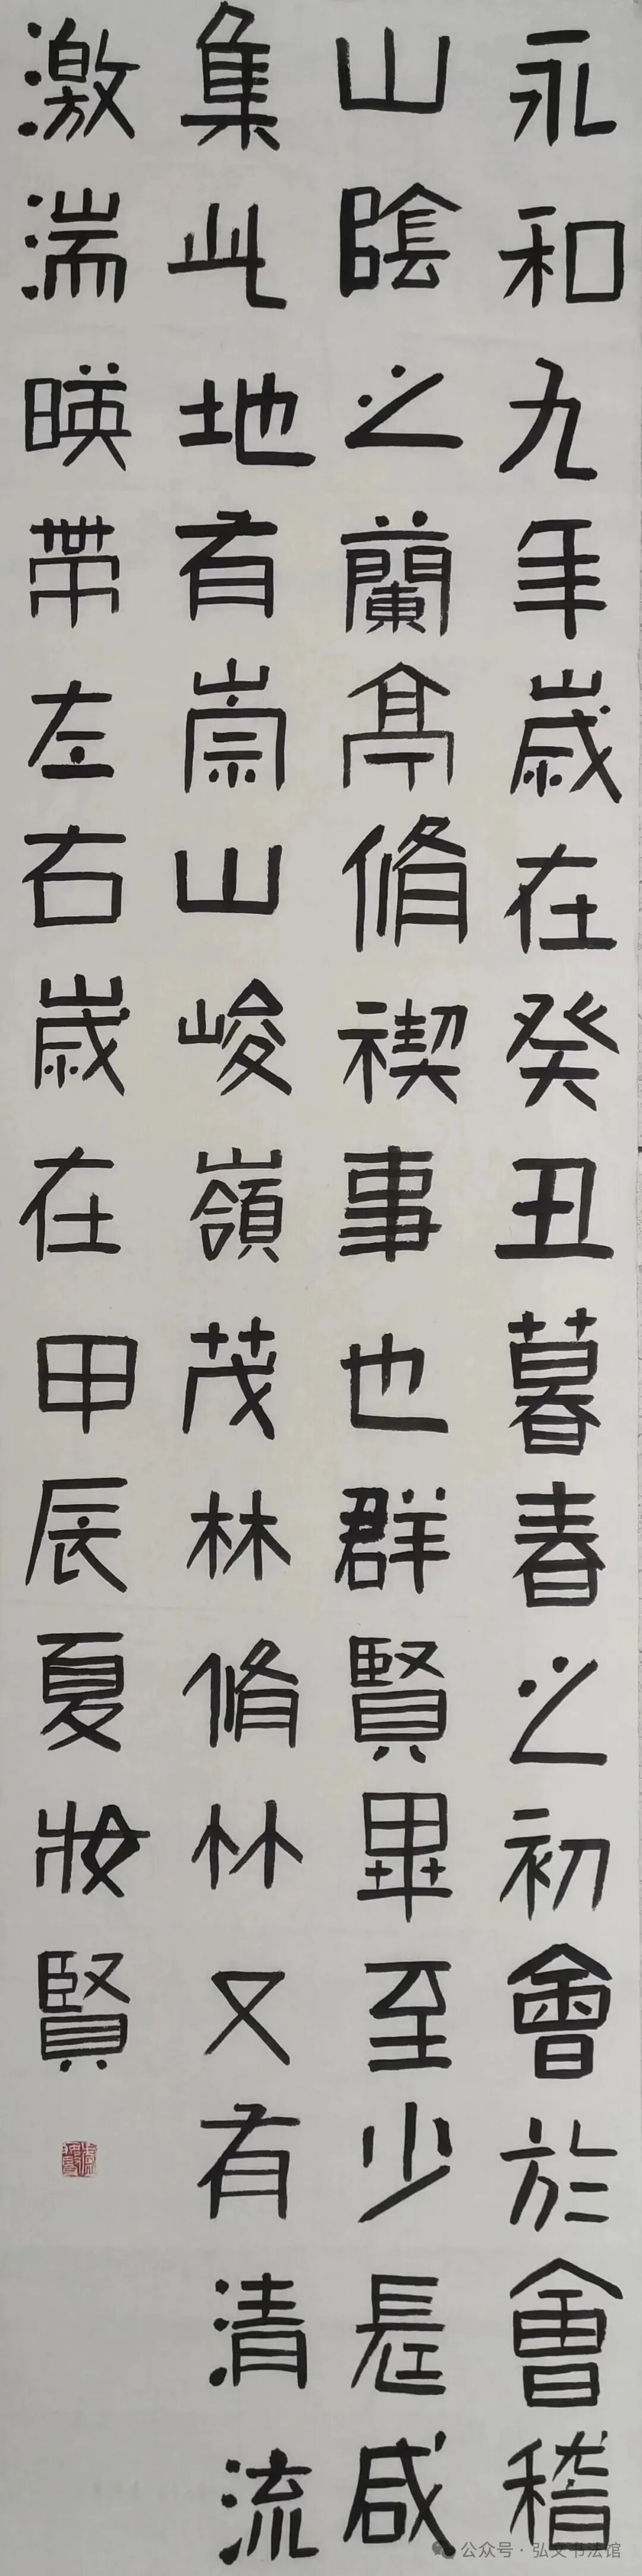 永和九年歲在癸丑暮春之初會於會稽
山陰之蘭亭脩禊事也群賢畢至少長咸
集此地有崇山峻嶺茂林脩林又有清流
激湍暎帶左右歲在甲辰夏妝賢
公众号·弘文书法馆